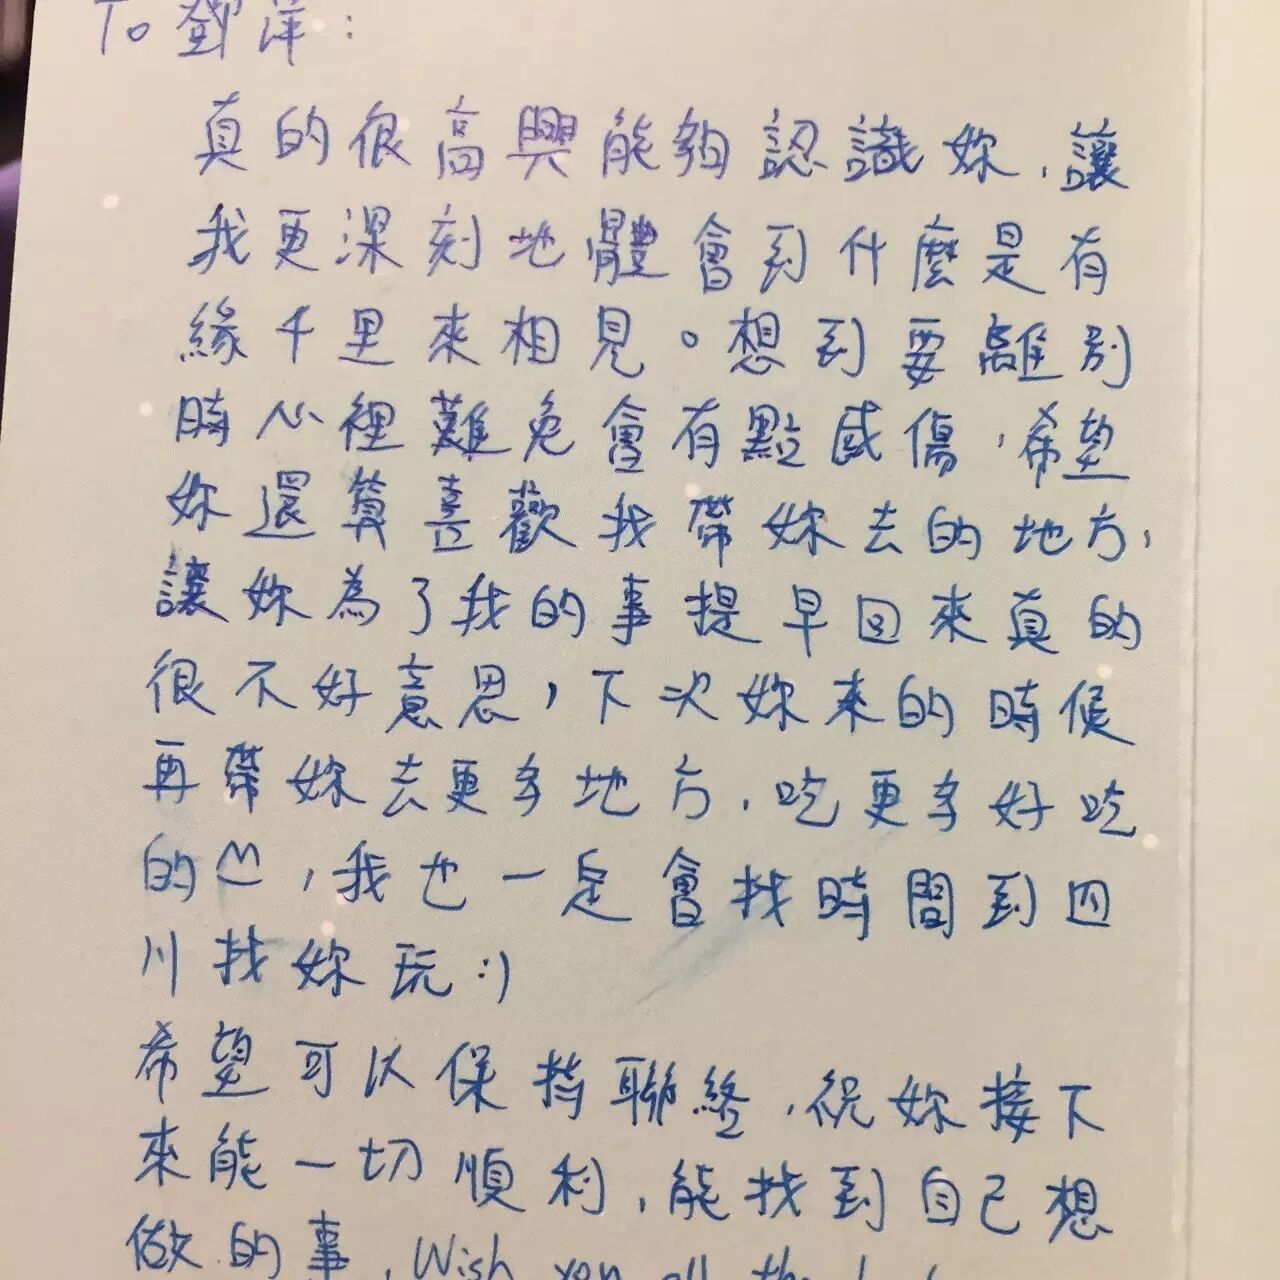 To 鄧萍：
真的很高興能夠認識妳，讓
我更深刻地體會到什麼是有
緣千里來相見。想到要離別
時心裡難免會有點感傷，希望
妳還算喜歡我帶妳去的地方，
讓妳為了我的事提早回來真的
很不好意思，下次妳來的時候
再帶妳去更多地方，吃更多好吃
的，我也一定會找時間到四
川找妳玩:)
希望可以保持聯絡，祝妳接下
來能一切順利，能找到自己想
做的事，Wish you all the